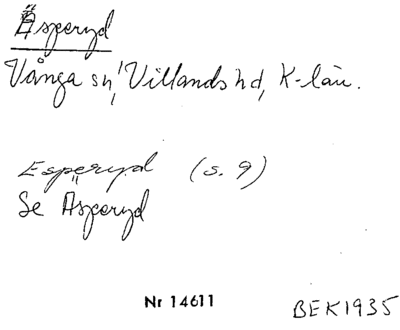 Äsperyd
Vånga sn, Villands hd, K-län.
Esperyd (s. 9)
Se Äsperyd
Nr 14611
BEK1935